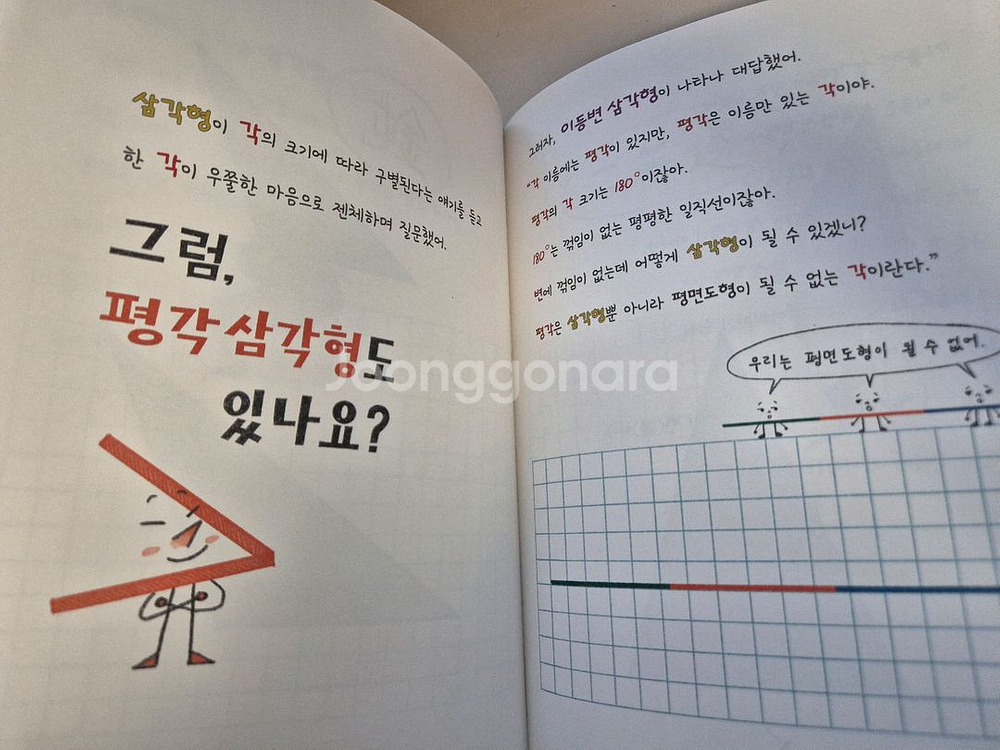 삼각형이 각의 크기에 따라 구별된다는 얘기를 듣고
한 각이 우쭐한 마음으로 젠체하며 질문했어.
그럼,
평각삼각형도
있나요?
그러자, 이등변 삼각형이 나타나 대답했어.
"각 이름에는 평각이 있지만, 평각은 이름만 있는 각이야.
평각의 각 크기는 180°이잖아.
180°는 꺾임이 없는 평평한 일직선이잖아.
변에 꺾임이 없는데 어떻게 삼각형이 될 수 있겠니?
평각은 삼각형뿐 아니라 평면도형이 될 수 없는 각이란다."
우리는 평면도형이 될 수 없어.
Joonggonara